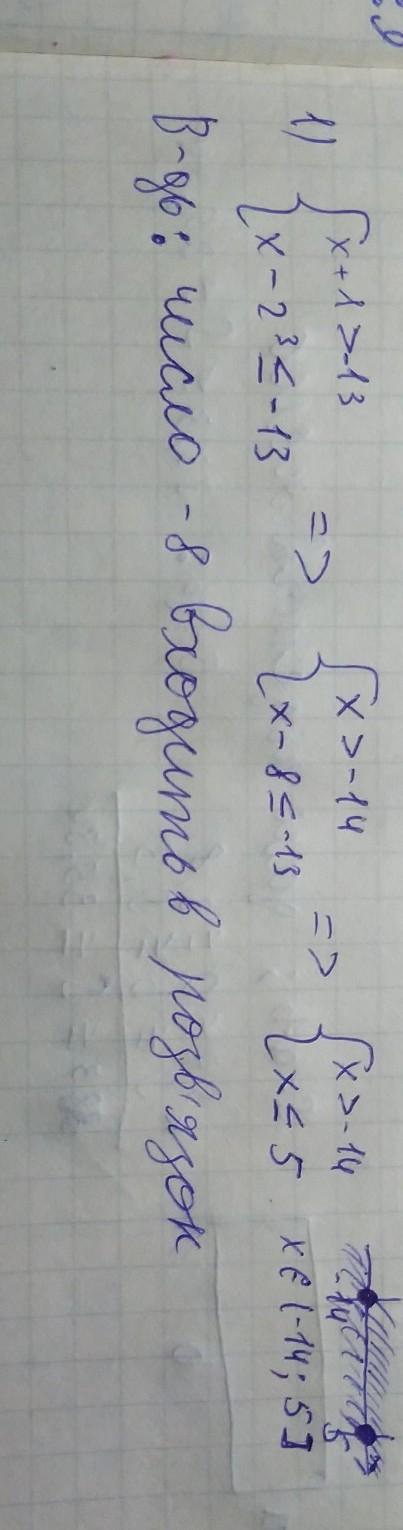 1) { x + 1 > -13 => { x > -14 => { x > -14
{ x - 2³ ≤ -13 { x - 8 ≤ -13 { x ≤ 5 x ∈ (-14; 5]
-14 5 x
В-дь: число -8 входить в розв'язок